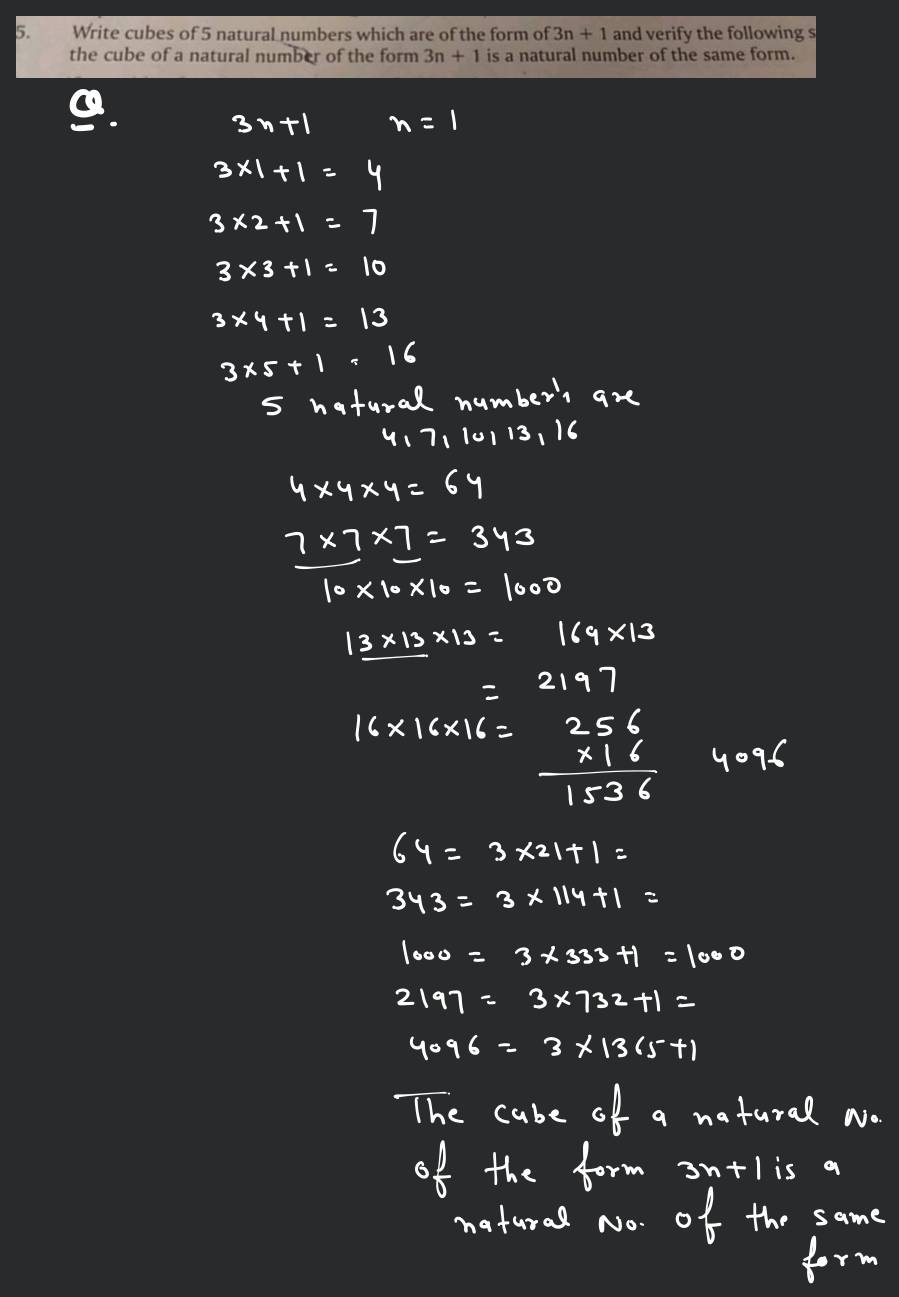 5. Write cubes of 5 natural numbers which are of the form of 3n + 1 and verify the following s
the cube of a natural number of the form 3n + 1 is a natural number of the same form.
Q.
3n+1 n = 1
3×1+1 = 4
3×2+1 = 7
3×3+1 = 10
3×4+1 = 13
3×5+1 = 16
5 natural number's are
4, 7, 10, 13, 16
4×4×4 = 64
7×7×7 = 343
10×10×10 = 1000
13×13×13 = 169×13
= 2197
16×16×16 = 256
×16 4096
1536
64 = 3×21+1 =
343 = 3×114+1 =
1000 = 3×333+1 = 1000
2197 = 3×732+1 =
4096 = 3×1365+1
The cube of a natural No.
of the form 3n+1 is a
natural No. of the same
form